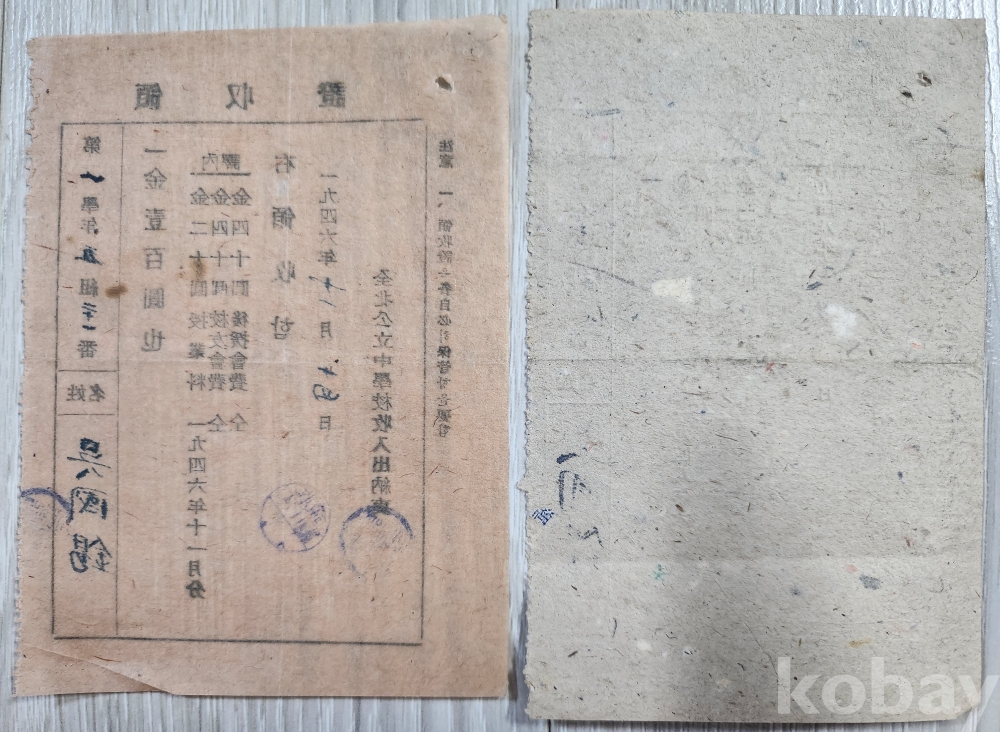 領収證
第一學年五組三十一番 姓名 吳國錫
一金壹百圓也
內譯
金四十圓 後援會費 仝
金四十圓 校友會費 仝
金二十圓 授業料 一九四六年十一月分
右領收함
一九四六年十一月十四日
全北公立中學校收入出納員
注意 一、領收證 各自必히保管 要함
kobay